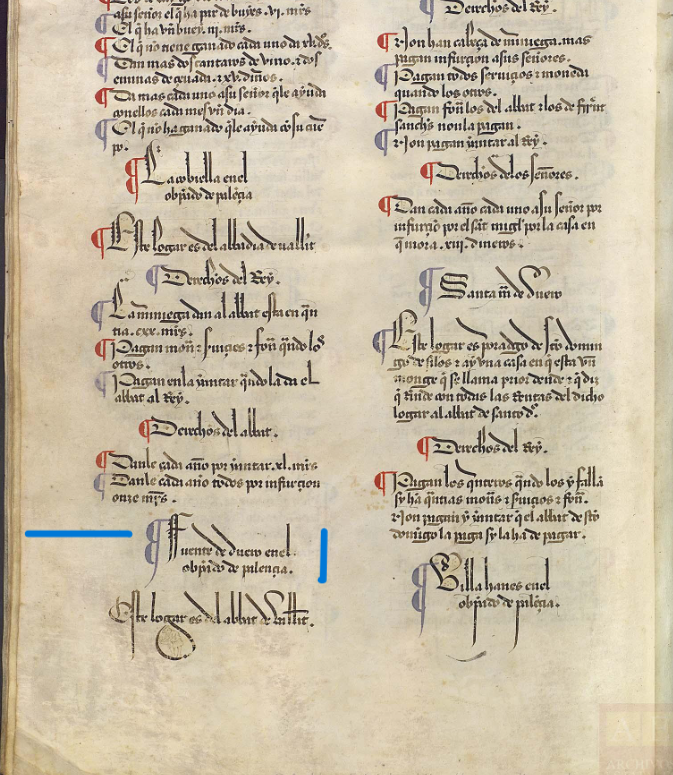 asu señor el q̃ ha par de buyes .vi. mr̃s
El q̃ ha vn buey .iii. mr̃s.
El q̃ no tiene ganado cada uno da
Dan mas dos cantaros de vino ⁊ dos
eminas de çeuada ⁊ .xv. din̄os.
Da mas cada uno asu señor q̃le ayuda
conellos cada mes vn dia.
El q̃ no ha ganado q̃le ayuda cõ su cuer
po.
La cobiella enel
obp̃ado de palẽçia
Este logar es del abbadia de vallit
Derechos del Rey.
La m̃niega dan al abbat esta en qũn
tia .cxx. mr̃s.
Pagan mon̄ ⁊ s̃uiçios ⁊ fon̄ q̃ndo los
otros.
Pagan enla yantar q̃ndo la da el
abbat al Rey.
Derechos del abbat.
Danle cada año por yantar .xl. mr̃s
Danle cada año todos por infurçion
onze mr̃s.
Fuente de duero enel
obp̃ado de palençia.
Este logar es del abbat de vallit.
Derechos del Rey.
⁊ Non han cabeça de m̃niega. mas
pagan infurçion asus señores.
Pagan todos seruiçios ⁊ moneda
quando los otros.
Pagan fon̄ los del abbat ⁊ los de
sanchs̃ non la pagan.
⁊ Non pagan yantar al rey.
Derechos delos señores.
Dan cada año cada uno asu señor por
infurçiõ por el sãt migl̃ por la casa en
q̃ mora .xiii. dineros.
Santa mã de duero
Este logar es p̃oradgo de sto domin
go de silos ⁊ ay vna casa en q̃ esta vn
monge q̃ se llama prior dende ⁊ q̃ diz
q̃ Rinde con todas las Rentas del dicho
logar al abbat de santo dº.
Derechos del Rey.
Pagan los q̃nteros q̃ndo los y falla
sy ha q̃ntias mon̄s ⁊ s̃uiçios ⁊ fon̄.
⁊ Non pagan y yantar q̃ el abbat de sto
domigo la paga sy la ha de pagar.
Villa hanes enel
obp̃ado de palẽçia.